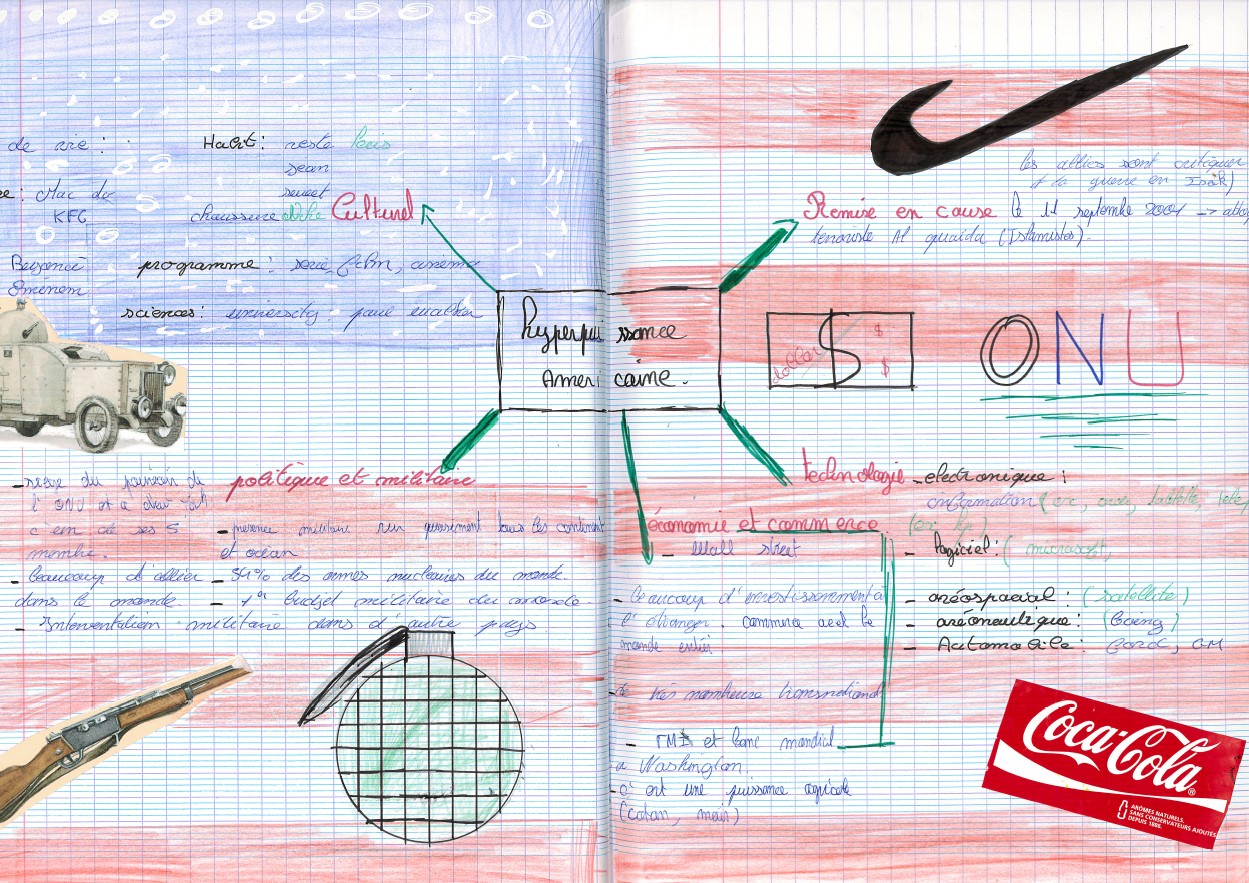 de vie :
Habit : veste
jean
sweet
chaussure Nike
Mac do
KFC
Culturel
programme : serie, film, cinema
Eminem
sciences :
Hyperpuissance
Américaine.
les alliés sont critiquer
la guerre en
Remise en cause le 11 septembre 2001 ->
terroriste Al quaida (Islamistes).
dollar $ $ $
ONU
politique et militaire
- du de
l'ONU et a droit
c'est un de ses 5
membre.
- beaucoup d'allier
dans le monde.
- presence militaire sur quasiment tous les continent
et océan
- 54% des armes nucleaires du monde.
- 1er budget militaire du monde.
- Intervention militaire dans d'autre pays.
technologie - electronique :
information (
- logiciel : ( microsoft,
- aréospacial : (satellite)
- aréonautique : (Boeing)
- Automobile : Ford, GM
économie et commerce
- Wall street
- beaucoup d'investissement à
l'étranger. commerce avec le
monde entier
de très nombreuse transnational
- FMI et banc mondial
a Washington.
- c'est une puissance agricole
(coton, maïs)
Coca-Cola®
ARÔMES NATURELS.
SANS CONSERVATEURS AJOUTÉS
DEPUIS 1886.